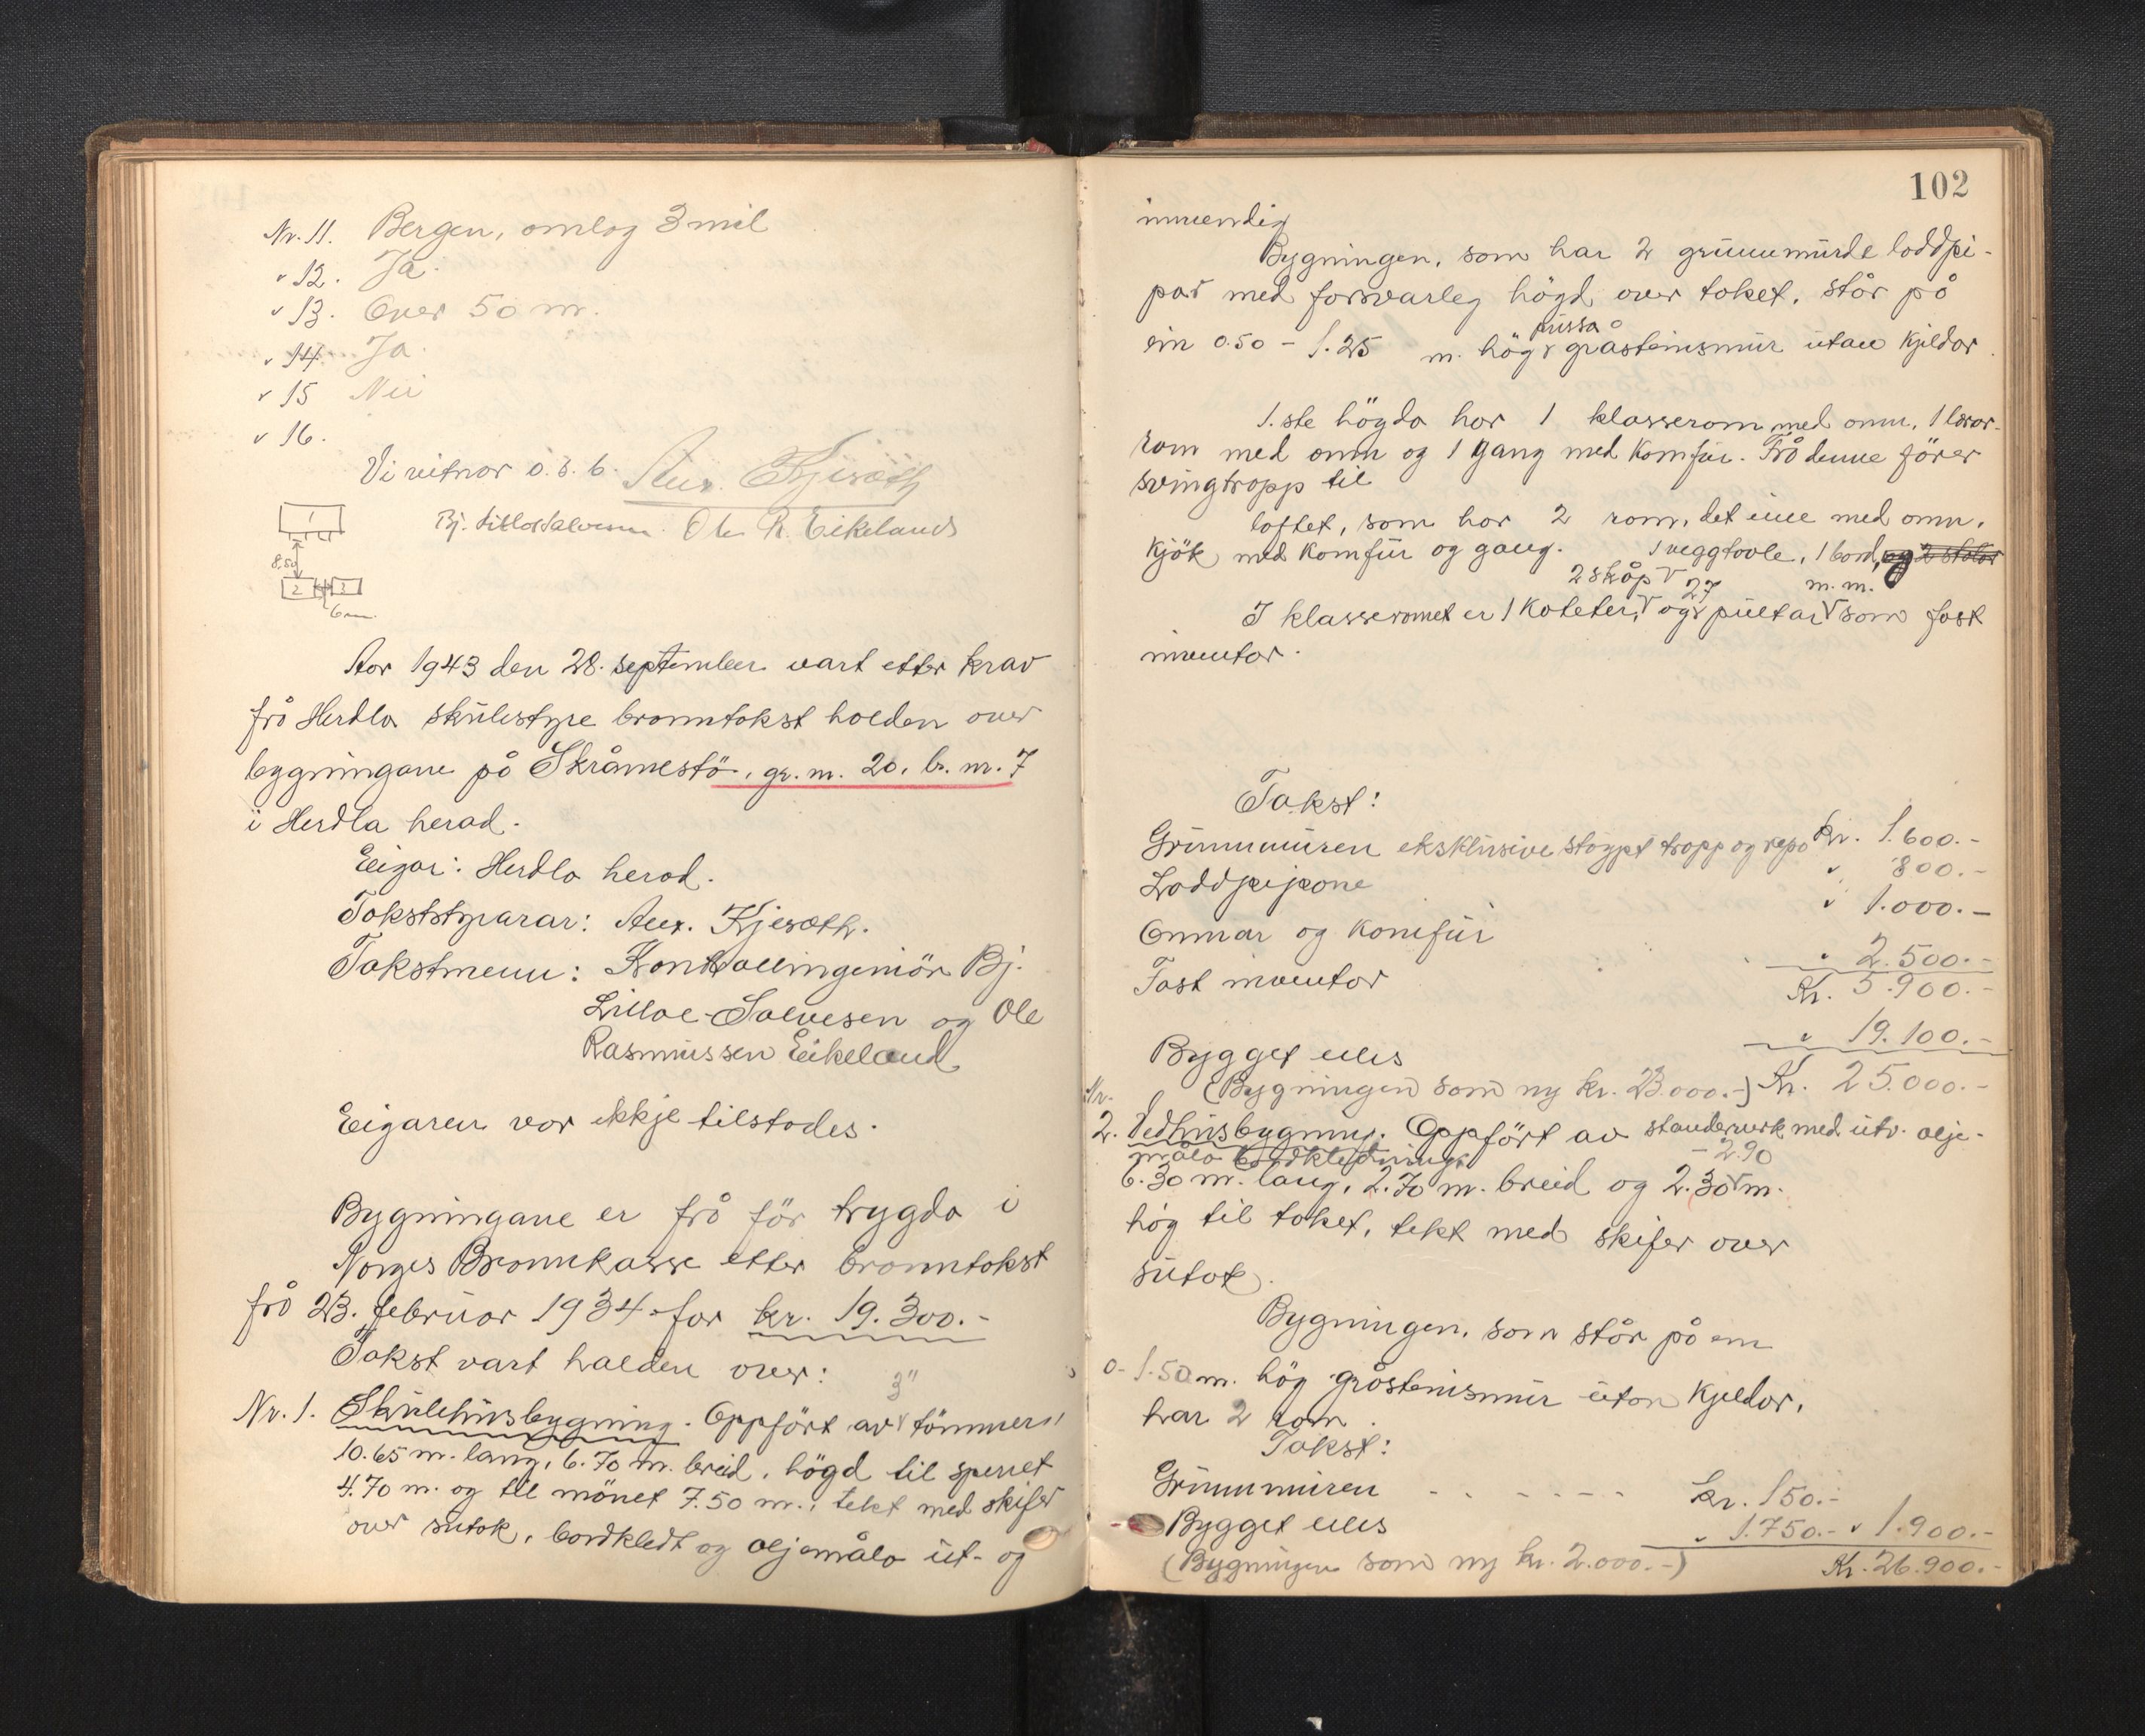 Nr. 11. Bergen, omlag 3 mil
" 12. Ja.
" 13. Over 50 m.
" 14. Ja.
" 15 Nei
" 16.
Vi vitnar o.s.b. Aur. Kjesæth
Bj. Lilloe Salvesen. Ole R. Eikeland
1
8,50
2 3
6 m.
Aar 1943 den 28. september vart etter krav
frå Herdla skulestyre branntakst halden over
bygningane på Skråmestö, gr. nr. 20, br. nr. 7
i Herdla herad.
Eigar: Herdla herad.
Takststyrarar: Aur. Kjesæth.
Takstmenn: Kontrollingeniör Bj.
Lilloe-Salvesen og Ole
Rasmussen Eikeland
Eigaren var ikkje tilstades.
Bygningane er frå för trygda i
Norges Brannkasse etter branntakst
frå 23. februar 1934 for kr. 19.300.-
Takst vart halden over:
3"
Nr. 1. Skulehusbygning. Oppfört av tömmer,
10.65 m. lang, 6.70 m. breid, högd til sperret
4.70 m. og til mönet 7.50 m., tekt med skifer
over sutak, bordkledt og oljemåla ut- og
102
innvendig
Bygningen, som har 2 grunnmurde loddpi-
par med forsvarleg högd over taket, står på
pussa
ein 0.50 - 1.25 m. hög gråsteinsmur utan kjeldar.
1.ste högda har 1 klasserom med omn, 1 lærar-
rom med omn og 1 gang med komfur. Frå denne förer
svingtrapp til
loftet, som har 2 rom, det eine med omn,
kjök med komfur og gang. 1 veggtavle, 1 bord, og 2 stolar
2 skåp 27 m.m.
I klasseromet er 1 kateter, og pultar som fast
inventar.
Takst:
Grunnmuren eksklusive stöypt trapp og repo Kr. 1.600.-
Loddpipone " 800.-
Omnar og komfur " 1.000.-
Fast inventar " 2.500.-
Kr. 5.900.-
Bygget elles " 19.100.-
(Bygningen som ny kr. 28.000.-) Kr. 25.000.-
Nr.
2. Vedhusbygning. Oppfört av standerverk med utv. olje-
måla bordkledning,
- 2.90
6.30 m. lang, 2.70 m. breid og 2.30 m.
hög til taket, tekt med skifer over
sutak.
Bygningen, som står på ein
0-1.50 m. hög gråsteinsmur utan kjeldar,
har 2 rom.
Takst:
Grunnmuren - - - - - - kr. 150.-
Bygget elles " 1.750.- " 1.900.-
(Bygningen som ny kr. 2.000.-) Kr. 26.900.-